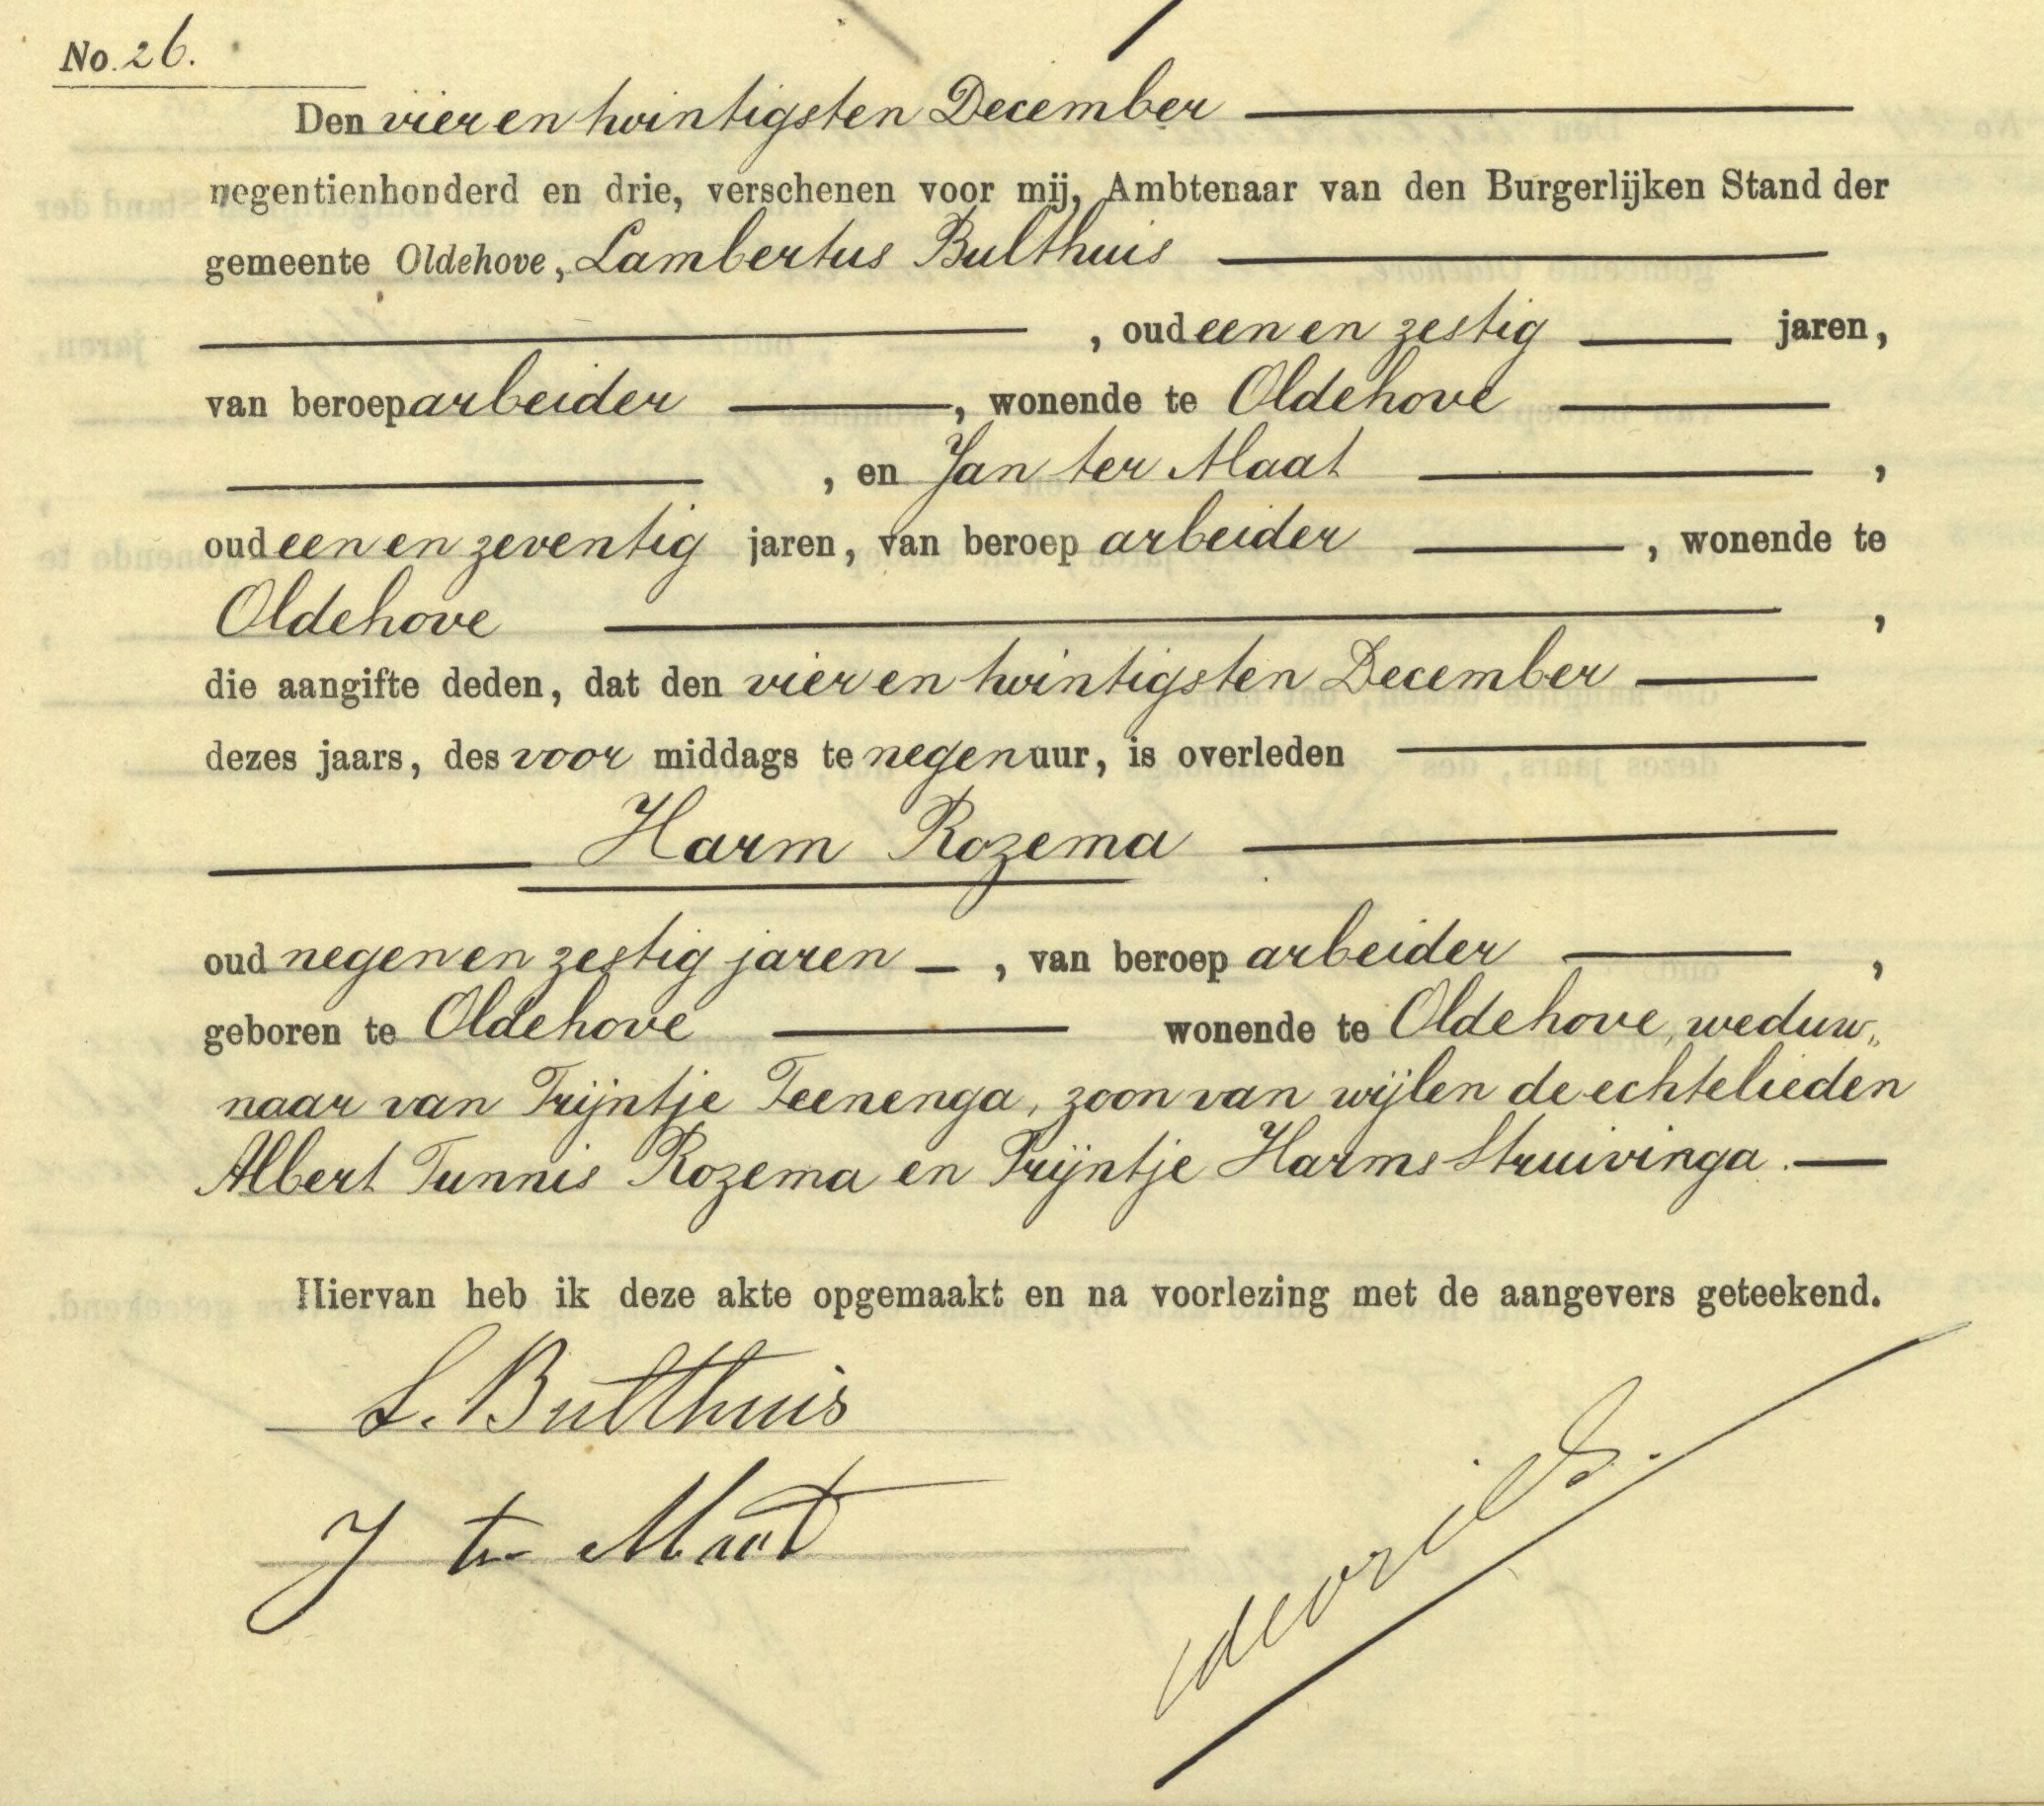 No. 26.
Den vier en twintigsten December
negentienhonderd en drie, verschenen voor mij, Ambtenaar van den Burgerlijken Stand der
gemeente Oldehove, Lambertus Bulthuis
, oud een en zestig jaren,
van beroep arbeider, wonende te Oldehove
, en Jan ter Maat,
oud een en zeventig jaren, van beroep arbeider, wonende te
Oldehove,
die aangifte deden, dat den vier en twintigsten December
dezes jaars, des voor middags te negen uur, is overleden
Harm Rozema
oud negen en zestig jaren, van beroep arbeider,
geboren te Oldehove wonende te Oldehove, weduw„
naar van Trijntje Teenenga, zoon van wijlen de echtelieden
Albert Tunnis Rozema en Trijntje Harms Struivinga.
Hiervan heb ik deze akte opgemaakt en na voorlezing met de aangevers geteekend.
L. Bulthuis
J ter Maat